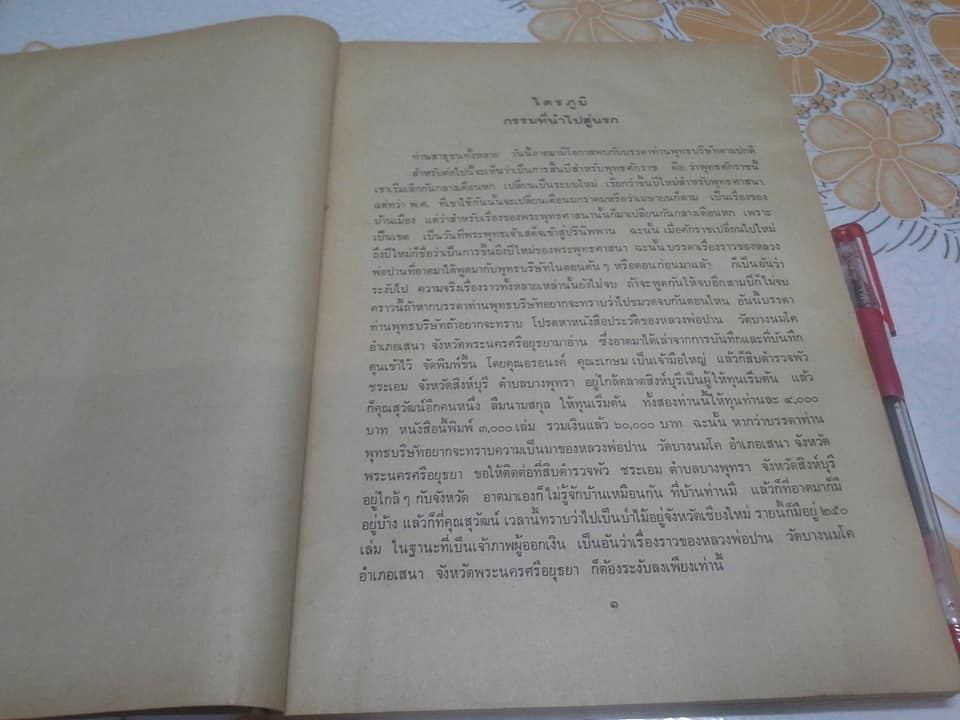 ไตรภูมิ
กรรมที่นำไปสู่นรก
ท่านสาธุชนทั้งหลาย วันนี้อาตมามีโอกาสพบกับบรรดาท่านพุทธบริษัทตามปกติ
สำหรับต่อไปนี้จะเห็นว่าเป็นการสิ้นปีสำหรับพุทธศักราช คือ ว่าพุทธศักราชนี้
เขาเริ่มเลิกกันกลางเดือนหก เปลี่ยนเป็นระบบใหม่ เรียกว่าขึ้นปีใหม่สำหรับพุทธศาสนา
แต่ทว่า พ.ศ. ที่เขาใช้กันนั้นจะเปลี่ยนเดือนมกราคมหรือว่าเมษายนก็ตาม เป็นเรื่องของ
บ้านเมือง แต่ว่าสำหรับเรื่องของพระพุทธศาสนานั้นก็มาเปลี่ยนกันกลางเดือนหก เพราะ
เป็นเขต เป็นวันที่พระพุทธเจ้าเสด็จเข้าสู่ปรินิพพาน ฉะนั้น เมื่อศักราชเปลี่ยนไปใหม่
ถึงปีใหม่ก็ชื่อว่าเป็นการขึ้นถึงปีใหม่ของพระพุทธศาสนา ฉะนั้น บรรดาเรื่องราวของหลวง
พ่อปานที่อาตมาได้พูดมากับพุทธบริษัทในตอนต้น ๆ หรือตอนก่อนมาแล้ว ก็เป็นอันว่า
ระงับไป ความจริงเรื่องราวทั้งหลายเหล่านั้นยังไม่จบ ถ้าจะพูดกันให้จบอีกสามปีก็ไม่จบ
คราวนี้ถ้าหากบรรดาท่านพุทธบริษัทอยากจะทราบว่าไปขมวดจบกันตอนไหน อันนี้บรรดา
ท่านพุทธบริษัทถ้าอยากจะทราบ โปรดหาหนังสือประวัติของหลวงพ่อปาน วัดบางนมโค
อำเภอเสนา จังหวัดพระนครศรีอยุธยามาอ่าน ซึ่งอาตมาได้เล่าจากการบันทึกและที่บันทึก
ตุนเข้าไว้ จัดพิมพ์ขึ้น โดยคุณอรอนงค์ คุณะเกษม เป็นเจ้ามือใหญ่ แล้วก็สิบตำรวจพัว
ชระเอม จังหวัดสิงห์บุรี ตำบลบางพุทรา อยู่ใกล้ตลาดสิงห์บุรีเป็นผู้ให้ทุนเริ่มต้น แล้ว
ก็คุณสุวัฒน์อีกคนหนึ่ง ลืมนามสกุล ให้ทุนเริ่มต้น ทั้งสองท่านนี้ให้ทุนท่านละ ๔,๐๐๐
บาท หนังสือนี้พิมพ์ ๓,๐๐๐ เล่ม รวมเงินแล้ว ๖๐,๐๐๐ บาท ฉะนั้น หากว่าบรรดาท่าน
พุทธบริษัทอยากจะทราบความเป็นมาของหลวงพ่อปาน วัดบางนมโค อำเภอเสนา จังหวัด
พระนครศรีอยุธยา ขอให้ติดต่อที่สิบตำรวจพัว ชระเอม ตำบลบางพุทรา จังหวัดสิงห์บุรี
อยู่ใกล้ ๆ กับจังหวัด อาตมาเองก็ไม่รู้จักบ้านเหมือนกัน ที่บ้านท่านมี แล้วก็ที่อาตมาก็มี
อยู่บ้าง แล้วก็ที่คุณสุวัฒน์ เวลานี้ทราบว่าไปเป็นป่าไม้อยู่จังหวัดเชียงใหม่ รายนี้ก็มีอยู่ ๒๕๐
เล่ม ในฐานะที่เป็นเจ้าภาพผู้ออกเงิน เป็นอันว่าเรื่องราวของหลวงพ่อปาน วัดบางนมโค
อำเภอเสนา จังหวัดพระนครศรีอยุธยา ก็ต้องระงับลงเพียงเท่านี้
๑